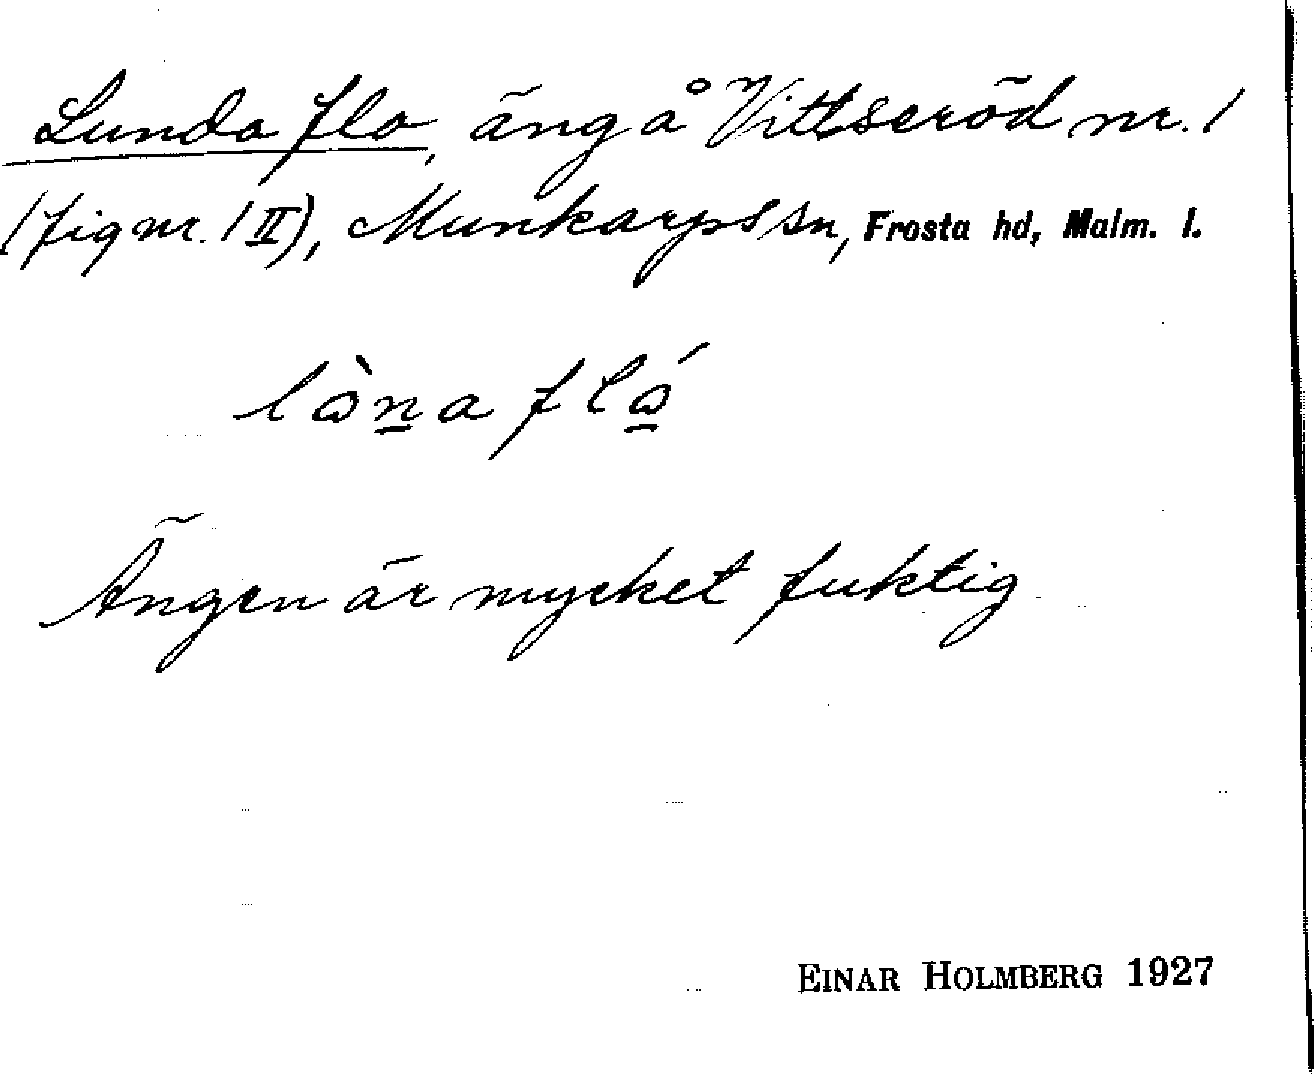 Lunda flo, äng å Vittseröd nr. 1
(fig nr. 1 II), Munkarps sn, Frosta hd, Malm. l.
lòn̲a fló̲
Ängen är mycket fuktig
EINAR HOLMBERG 1927